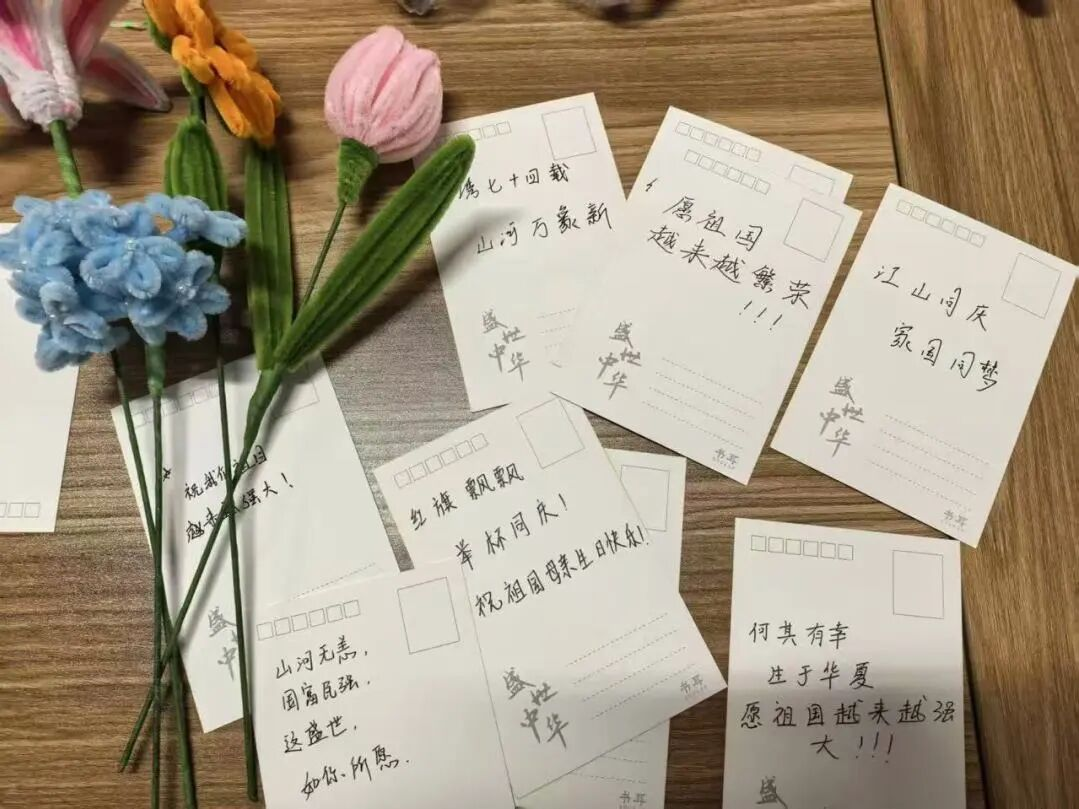 七十四载
山河万象新
盛世
中华
愿祖国
越来越繁荣
!!!
盛世
中华
书耳
江山同庆
家国同梦
盛世
中华
书耳
祝我们祖国
越来越强大!
盛
中
红旗飘飘
举杯同庆!
祝祖国母亲生日快乐!
盛世
中华
书耳
山河无恙,
国富民强,
这盛世,
如你所愿.
何其有幸
生于华夏
愿祖国越来越强
大!!!
盛
书耳